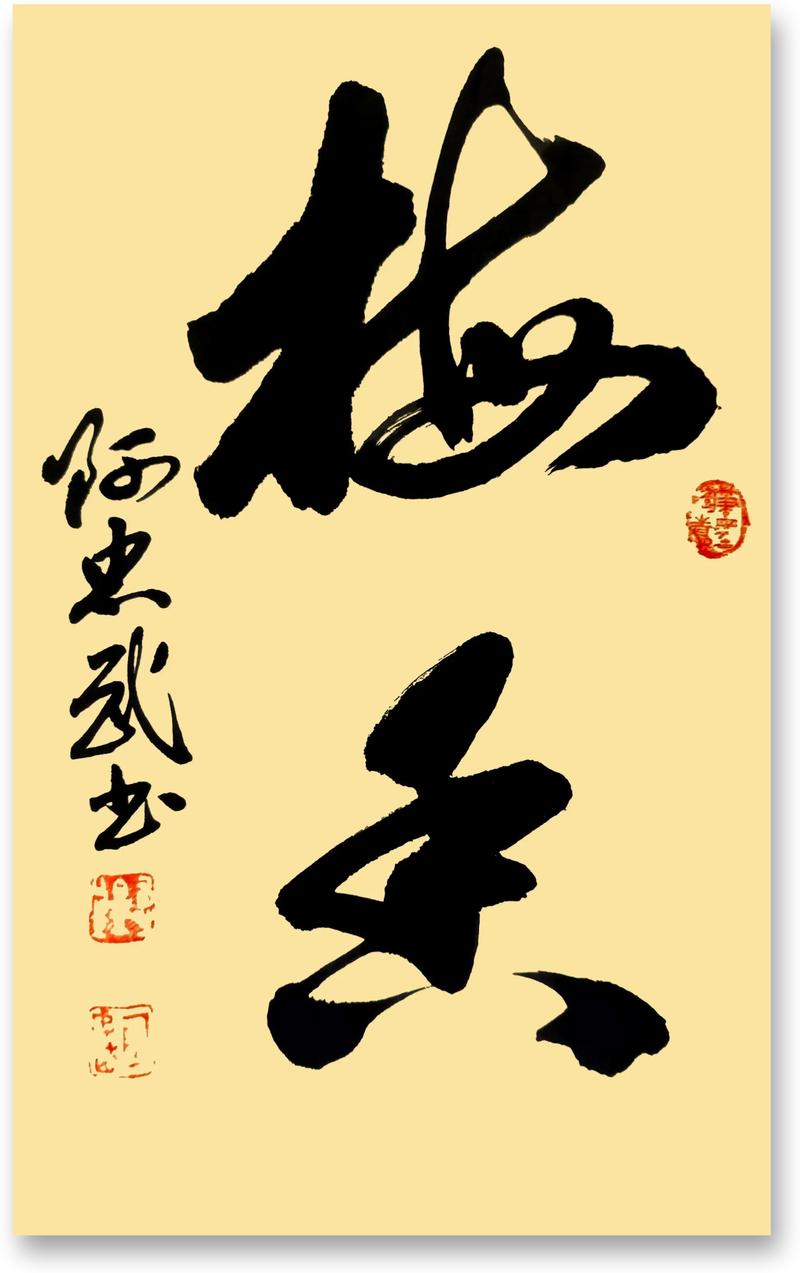 梅香
阿忠武书